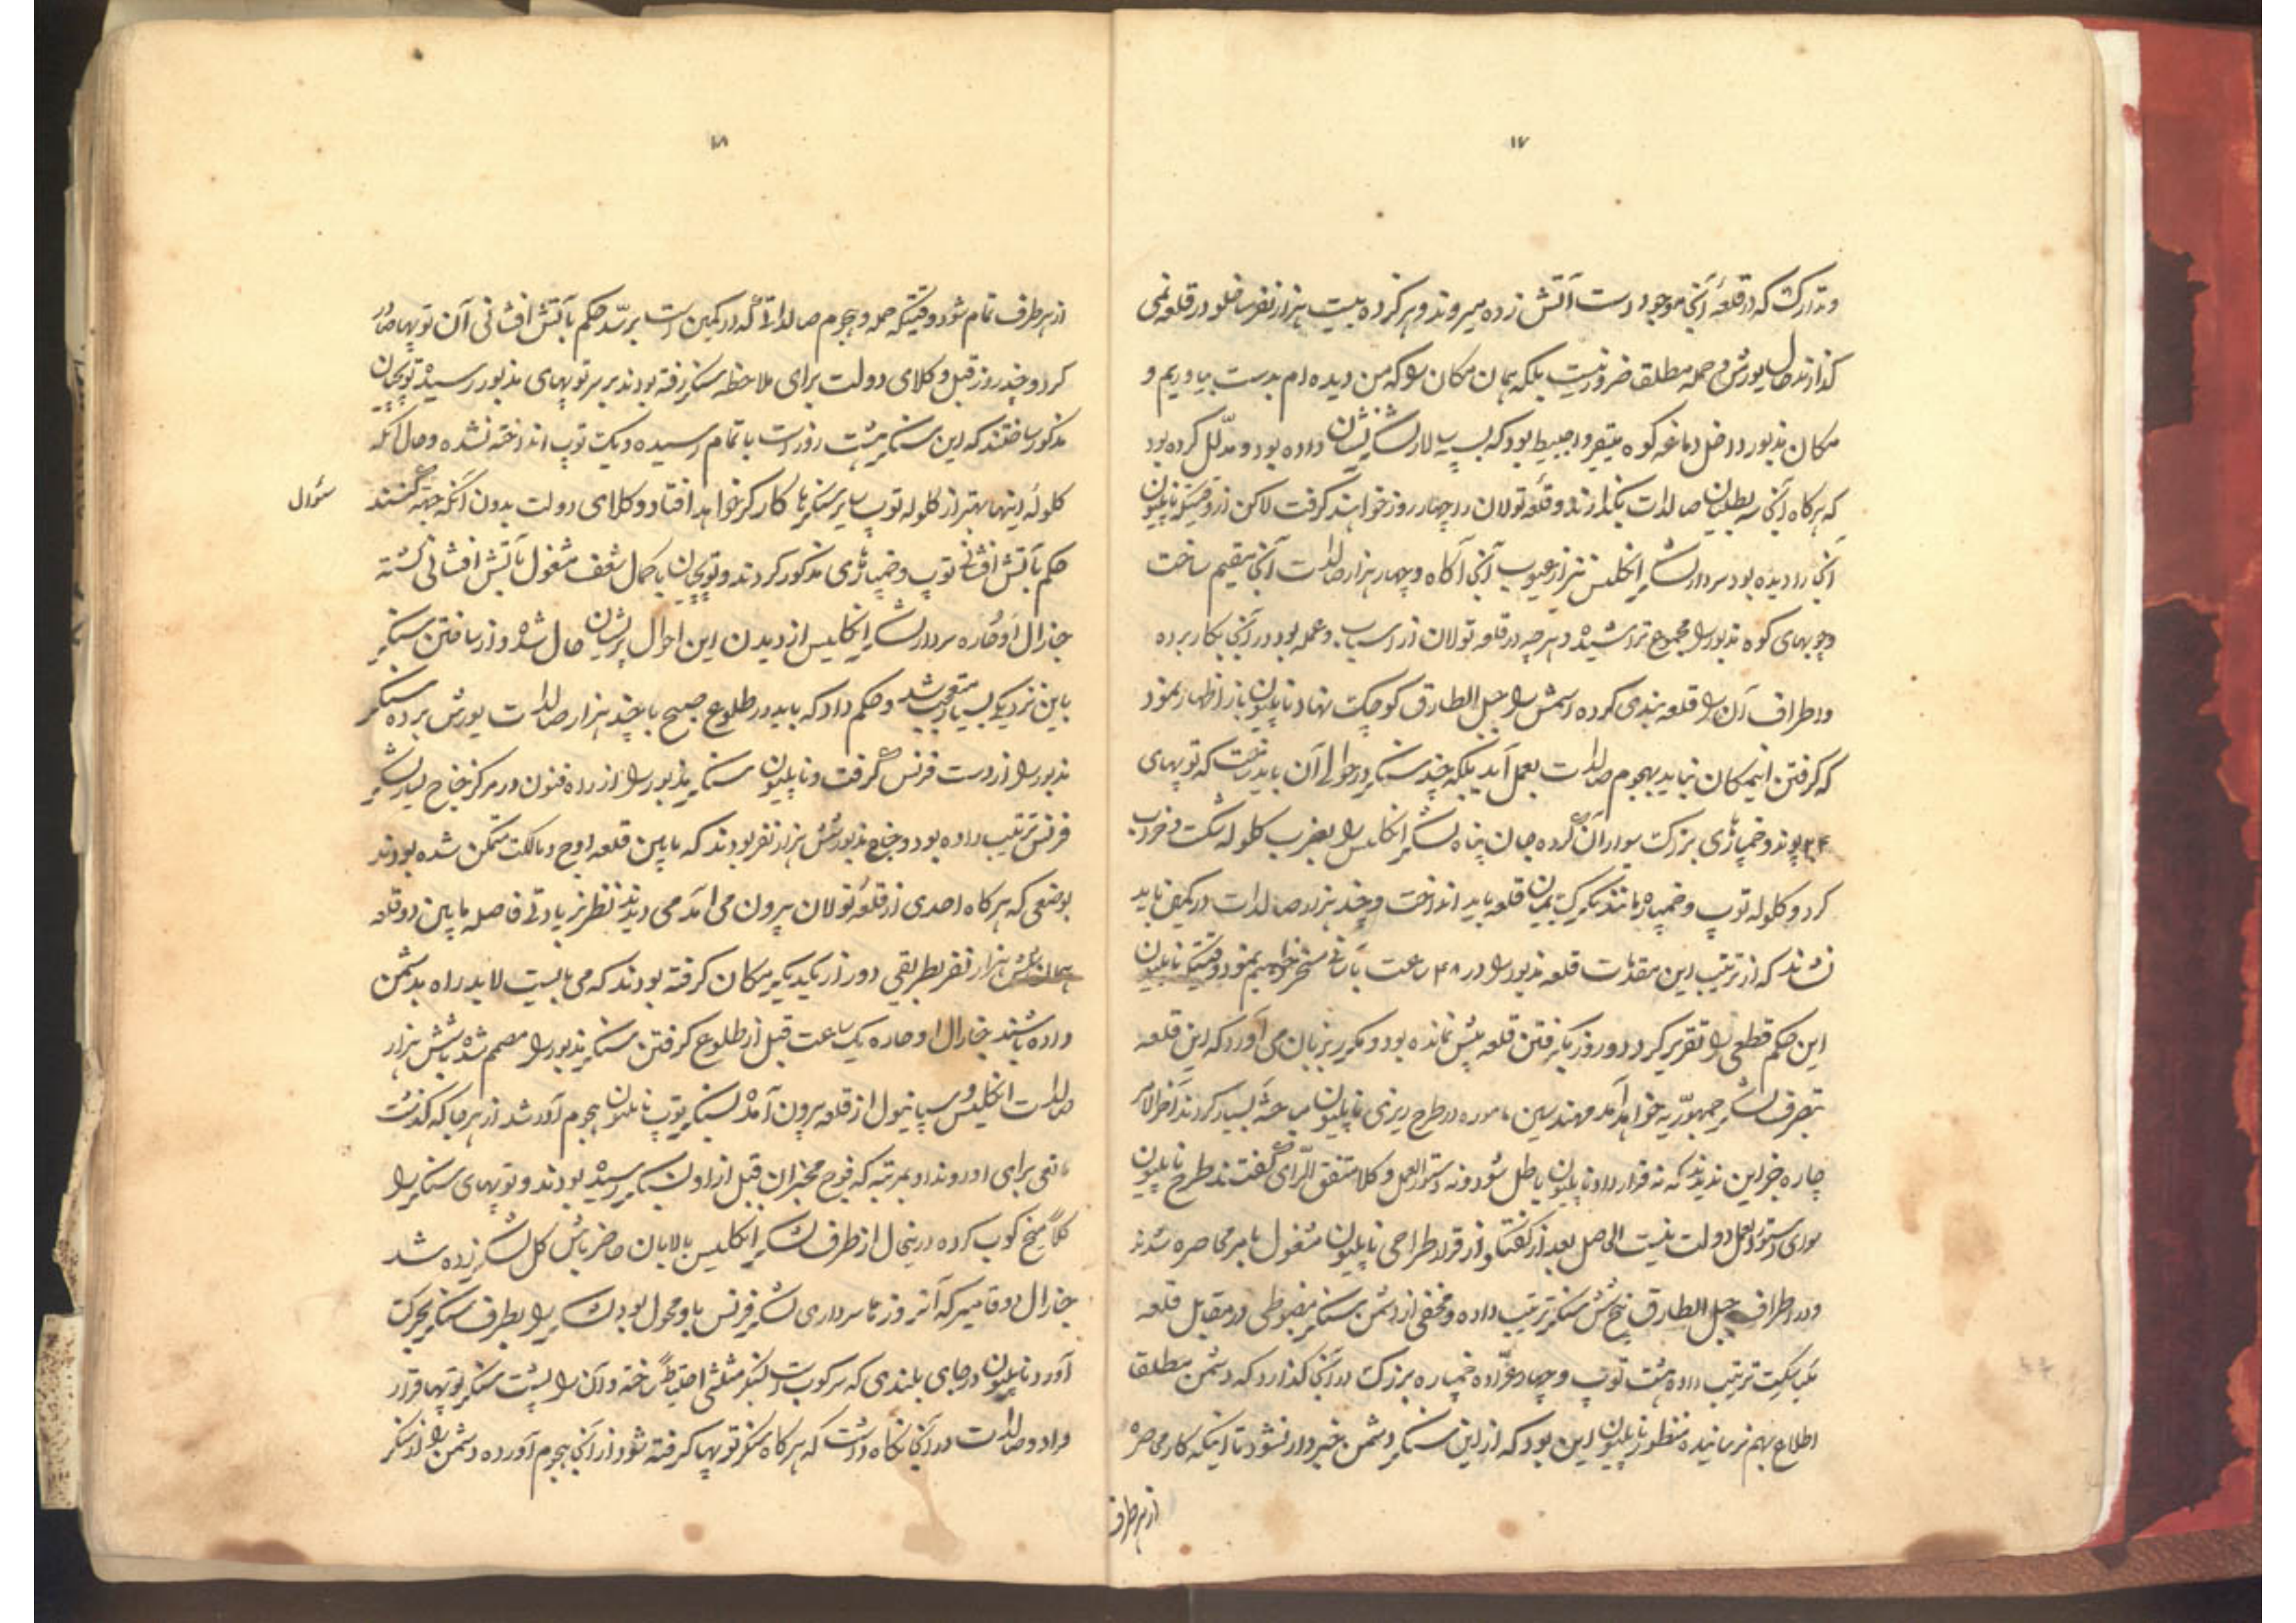 ۱۷
و تدارکت که در قلعهٔ آنجا موجود است آتش زده میروند و هرگز ده بیست هزار نفر ساخلو در قلعه نمی
گذارند حال یورش و حمله مطلق ضرور نیست بلکه همان مکان را که من دیده‌ام بدست بیاوریم و
مکان مذبور داخل دماغه کوه بود که بسپه سالار لشکر نشان داده بود و مدلل کرده بود
که هرگاه آنجا سه بطلیان صالدات بگذارند قلعه تولان در چهار روز خواهند گرفت لاکن از وقتیکه ناپلیون
آنجا را دیده بود سردار لشکر انگلیس نیز از عیوب آنجا آگاه و چهار هزار صالدات آنجا مقیم ساخت
و چوبهای کوه مذبور را مجموع تراشیده و هر چه در قلعه تولان از اسباب و عمله بود در آنجا بکار برده
و در اطراف آن را قلعه بندی کرده اسمش را جبل الطارق کوچک نهاد ناپلیون باز اظهار نمود
که گرفتن اینمکان نباید بهجوم صالدات بعمل آید بلکه چند سنگر در حوالی آن باید ساخت که توپهای
۲۴ پوند و خمپاره‌ی بزرک سوار آن کرده جان پناه لشکر انگلیس را بضرب کلوله شکست و خراب
کرد و کلوله توپ و خمپاره مانند تگرک بمیان قلعه باید انداخت و چند هزار صالدات در کمین باید
نشاند که از ترتیب این مقدمات قلعه مذبور را در ۴۸ ساعت بآسانی مسخر خواهیم نمود وقتیکه ناپلیون
این حکم قطعی را تقریر کرد دو روز بگرفتن قلعه بیش نمانده بود و مکرر بر زبان می آورد که این قلعه
بتصرف لشکر جمهوریه خواهد آمد مهندسین مامور در طرح ریزی ناپلیون مباحثه بسیار کردند آخر الامر
چاره جز این ندیدند که نه قرارداد ناپلیون باطل شود و نه دستور العمل وکلا متفق الرای گفتند طرح ناپلیون
سوای دستور العمل دولت نیست الحاصل بعد از گفتگو از قرار طراحی ناپلیون مشغول بامر محاصره شدند
و در اطراف جبل الطارق پنج شش سنگر ترتیب داده و مخفی از دشمن سنگر مضبوطی در مقابل قلعه
ترتیب داده هشت توپ و چهار عراده خمپاره بزرک در آنجا گذارد که دشمن مطلقا
اطلاع بهم نرسانیده منظور ناپلیون این بود که از این سنگر دشمن خبردار نشود تا اینکه کار محاصره
از هر طرف
۱۸
از هر طرف تمام شود و وقتیکه حمله و هجوم صالداتیکه در کمین است برسد حکم بآتش افشانی آن توپها صادر
کرد و چند روز قبل وکلای دولت برای ملاحظه سنگر رفته بودند بر سر توپهای مذبور رسیده توپچیان
مذکور ساختند که این سنگر هشت روز است باتمام رسیده و یک توپ انداخته نشده و حال آنکه
کلوله اینها بهتر از کلوله توپ سایر سنگرها کارگر خواهد افتاد وکلای دولت بدون آنکه جهة کنند
سئوال
حکم بآتش افشانی توپ و خمپاره‌ی مذکور کردند و توپچیان با کمال شعف مشغول بآتش افشانی گشته
جنرال اوحاره سردار لشکر انگلیس از دیدن این احوال پریشان حال شده و از ساختن سنگر
باین نزدیکی بسیار متعجب شد و حکم داد که باید در طلوع صبح با چند هزار صالدات یورش برده سنگر
مذبور را از دست فرنس گرفت و ناپلیون سنگر مذبور را از راه فنون در مرکز جناح یسار لشکر
فرنس ترتیب داده بود و جناح مذبور شش هزار نفر بودند که مابین قلعه اوج و مالکت متمکن شده بودند
بوضعی که هرگاه احدی از قلعه تولان بیرون می آمد می دیدند نظر بزیادتی فاصله مابین دو قلعه
همان شش هزار نفر بطریقی دور از یکدیگر مکان گرفته بودند که می بایست لابد راه بدشمن
داده باشند جنرال اوحاره یک ساعت قبل از طلوع گرفتن سنگر مذبور را مصمم شده با شش هزار
صالدات انگلیس و سپانیول از قلعه بیرون آمده بسنگر توپ ناپلیون هجوم آور شد از هر جا که گذشت
مانعی برای او رو نداد بمرتبه که فوج مخبران قبل از او بسنگر رسیده بودند و توپهای سنگر را
کلاً میخ کوب کرده در اینحال از طرف لشکر انگلیس بالابان حاضر باش کل لشکر زده شد
جنرال دوقامیر که آنروزها سرداری لشکر فرنس باو محول بود لشکر را بطرف سنگر بحرکت
آورد ناپلیون در جای بلندی که سرکوب است سنگر مثلثی احتیاطاً ساخته و آن را پشت سنگر توپها قرار
داد و صالدات در آنجا نگاه داشت که هرگاه سنگر توپها گرفته شود از آنجا هجوم آورده دشمن را از سنگر